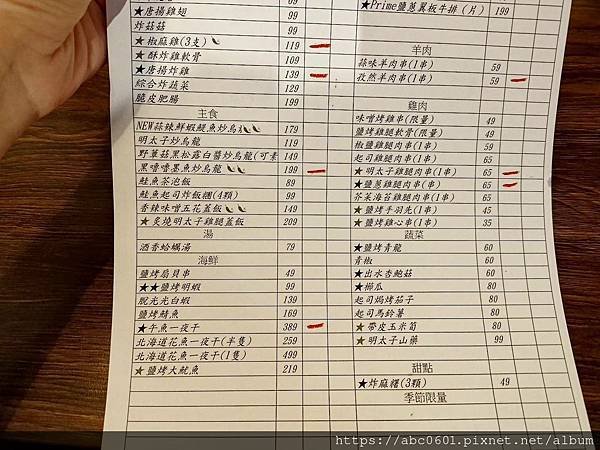 ★唐揚雞翅 69
炸菇菇 99
★椒麻雞(3支) 119
★酥炸雞軟骨 109
★唐揚炸雞 139
綜合炸蔬菜 129
脆皮肥腸 199
主食
NEW蒜辣鮮蝦鯷魚炒烏 179
明太子炒烏龍 119
野蕈菇黑松露白醬炒烏龍(可素 149
黑嚕嚕墨魚炒烏龍 199
鮭魚茶泡飯 89
鮭魚起司炸飯糰(4顆) 99
香辣味噌五花蓋飯 149
★炙燒明太子雞腿蓋飯 209
湯
酒香蛤蠣湯 79
海鮮
鹽烤扇貝串 49
★★鹽烤明蝦 99
脫光光白蝦 139
鹽烤鯖魚 169
★午魚一夜干 389
北海道花魚一夜干(半隻) 259
北海道花魚一夜干(1隻) 499
★鹽烤大魷魚 219
★Prime鹽蔥翼板牛排(片) 199
羊肉
蒜味羊肉串(1串) 59
孜然羊肉串(1串) 59
雞肉
味噌烤雞串(限量) 49
鹽烤雞腿軟骨(限量) 49
椒鹽雞腿肉串(1串) 59
起司雞腿肉串(1串) 65
★明太子雞腿肉串(1串) 65
★鹽蔥雞腿肉串(串) 65
芥茉海苔雞腿肉串(1串) 65
★鹽烤手羽先(1串) 45
★鹽烤雞心串(1串) 35
蔬菜
★鹽烤青龍 60
青椒 60
★出水杏鮑菇 60
★櫛瓜 80
起司焗烤茄子 80
起司馬鈴薯 80
★帶皮玉米筍 80
★明太子山藥 99
甜點
★炸麻糬(3顆) 49
季節限量
https://abc0601.pixnet.net/album